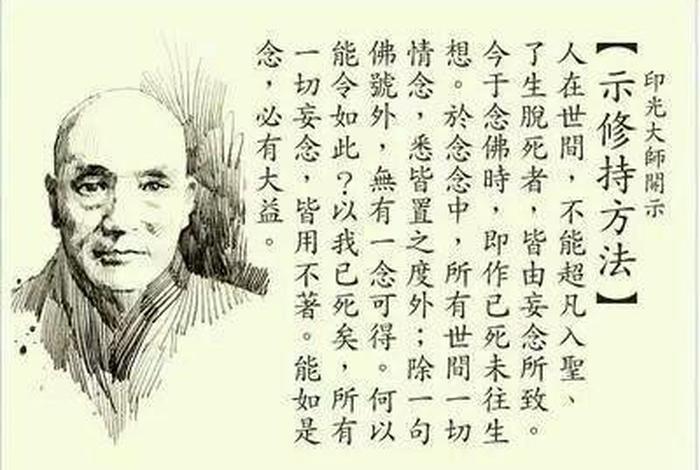 印光大師開示
【示修持方法】
人在世間，不能超凡入聖、
了生脫死者，皆由妄念所致。
今于念佛時，即作已死未往生
想。於念念中，所有世間一切
情念，悉皆置之度外；除一句
佛號外，無有一念可得。何以
能令如此？以我已死矣，所有
一切妄念，皆用不著。能如是
念，必有大益。